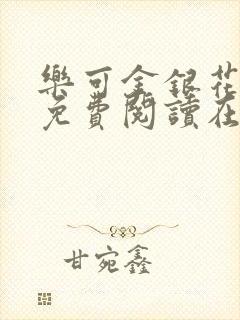 樂可金銀花
免費閱讀在
甘宛鑫